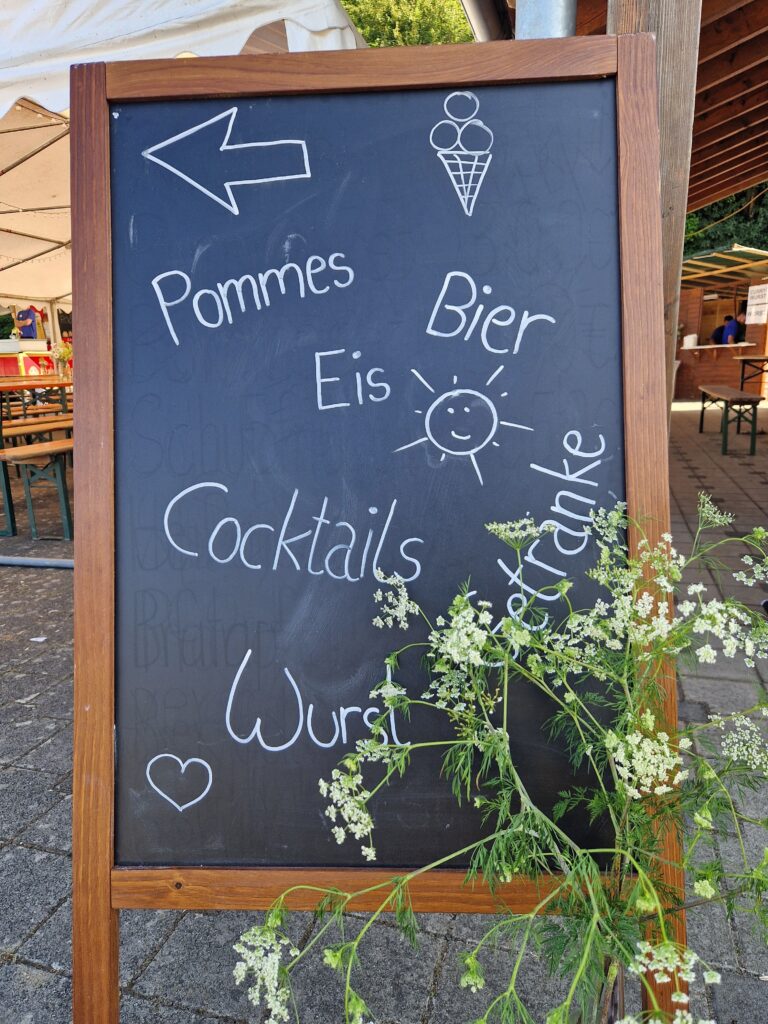 Pommes
Bier
Eis
Cocktails
Getränke
Wurst